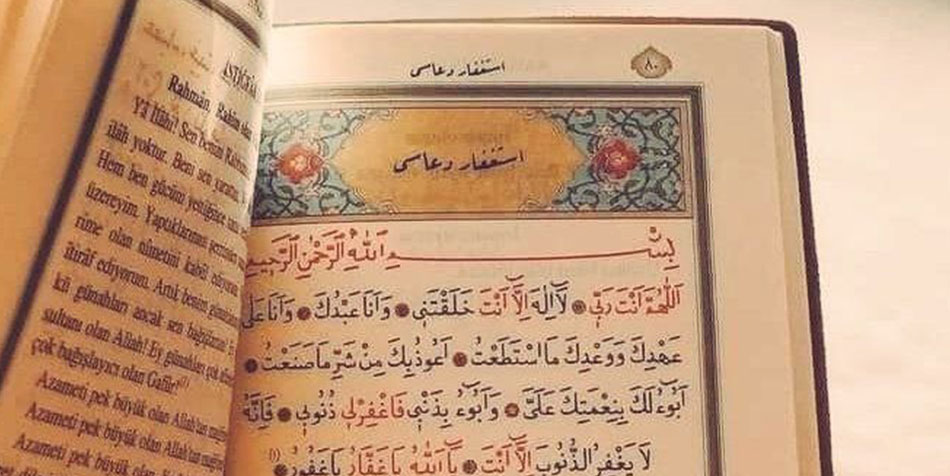 İSTİĞFÂR
Rahmân, Rahîm olan
Yâ İlâhi! Sen benim Rabbim
ilâh yoktur. Ben sen yarattın
Hem ben gücüm yettiğince
üzereyim. Yaptıklarımın şerrinden
rime olan nimetini kabûl ediyorum
itirâf ediyorum. Artık benim günahlarımı
kü günahları ancak sen bağışlarsın! Ey
sultanı olan Allah! Ey günahları çok
çok bağışlayıcı olan Gafûr!(1)
Azameti pek büyük olan Allah'tan
Azameti pek büyük olan Allah'tan
Azameti pek büyük olan
استغفار دعاسى
٨٠
استغفار دعاسى
بِسْمِ اللهِ الرَّحْمٰنِ الرَّحِيمِ
اَللّٰهُمَّ اَنْتَ رَبِّي ❁ لَٓا اِلٰهَ اِلَّٓا اَنْتَ خَلَقْتَنِي ❁ وَاَنَا عَبْدُكَ ❁ وَاَنَا عَلٰى
عَهْدِكَ وَوَعْدِكَ مَا اسْتَطَعْتُ ❁ اَعُوذُ بِكَ مِنْ شَرِّ مَا صَنَعْتُ ❁
اَبُٓوءُ لَكَ بِنِعْمَتِكَ عَلَيَّ ❁ وَاَبُٓوءُ بِذَنْبِي فَاغْفِرْلِي ذُنُوبِي ❁ فَاِنَّهُ
لَا يَغْفِرُ الذُّنُوبَ اِلَّٓا اَنْتَ ❁ يَٓا اَللّٰهُ يَا غَفَّارُ يَا غَفُورُ ❁ (١)